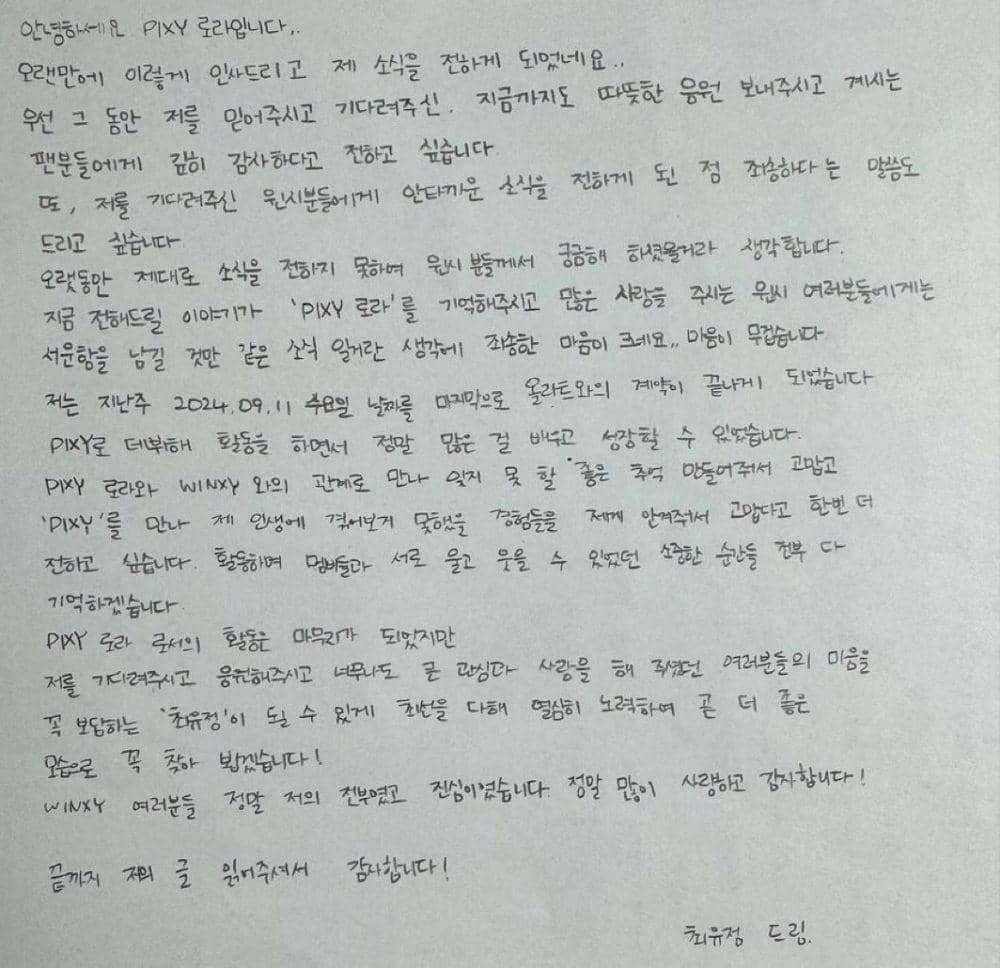 안녕하세요 PIXY 로라입니다..
오랜만에 이렇게 인사드리고 제 소식을 전하게 되었네요..
우선 그 동안 저를 믿어주시고 기다려주신. 지금까지도 따뜻한 응원 보내주시고 계시는
팬분들에게 깊히 감사하다고 전하고 싶습니다.
또, 저를 기다려주신 윈시분들에게 안타까운 소식을 전하게 된 점 죄송하다는 말씀도
드리고 싶습니다
오랫동안 제대로 소식을 전하지 못하여 윈씨 분들께서 궁금해 하셨을거라 생각합니다.
지금 전해드릴 이야기가 'PIXY 로라'를 기억해주시고 많은 사랑을 주시는 윈씨 여러분들에게는
서운함을 남길 것만 같은 소식 일거란 생각에 죄송한 마음이 크네요.. 마음이 무겁습니다
저는 지난주 2024.09.11 수요일 날짜를 마지막으로 올라트와의 계약이 끝나게 되었습니다
PIXY로 데뷔해 활동을 하면서 정말 많은 걸 배우고 성장할 수 있었습니다.
PIXY 로라와 WINXY 와의 관계로 만나 잊지 못 할 좋은 추억 만들어줘서 고맙고
'PIXY'를 만나 제 인생에 겪어보지 못했을 경험들을 제게 안겨줘서 고맙다고 한번 더
전하고 싶습니다. 활동하며 멤버들과 서로 울고 웃을 수 있었던 소중한 순간들 전부 다
기억하겠습니다.
PIXY 로라 로서의 활동은 마무리가 되었지만
저를 기다려주시고 응원해주시고 너무나도 큰 관심과 사랑을 해 주셨던 여러분들의 마음을
꼭 보답하는 '최유정'이 될 수 있게 최선을 다해 열심히 노력하여 곧 더 좋은
모습으로 꼭 찾아 뵙겠습니다!
WINXY 여러분들 정말 저의 전부였고 진심이였습니다. 정말 많이 사랑하고 감사합니다!
끝까지 저의 글 읽어주셔서 감사합니다!
최유정 드림.